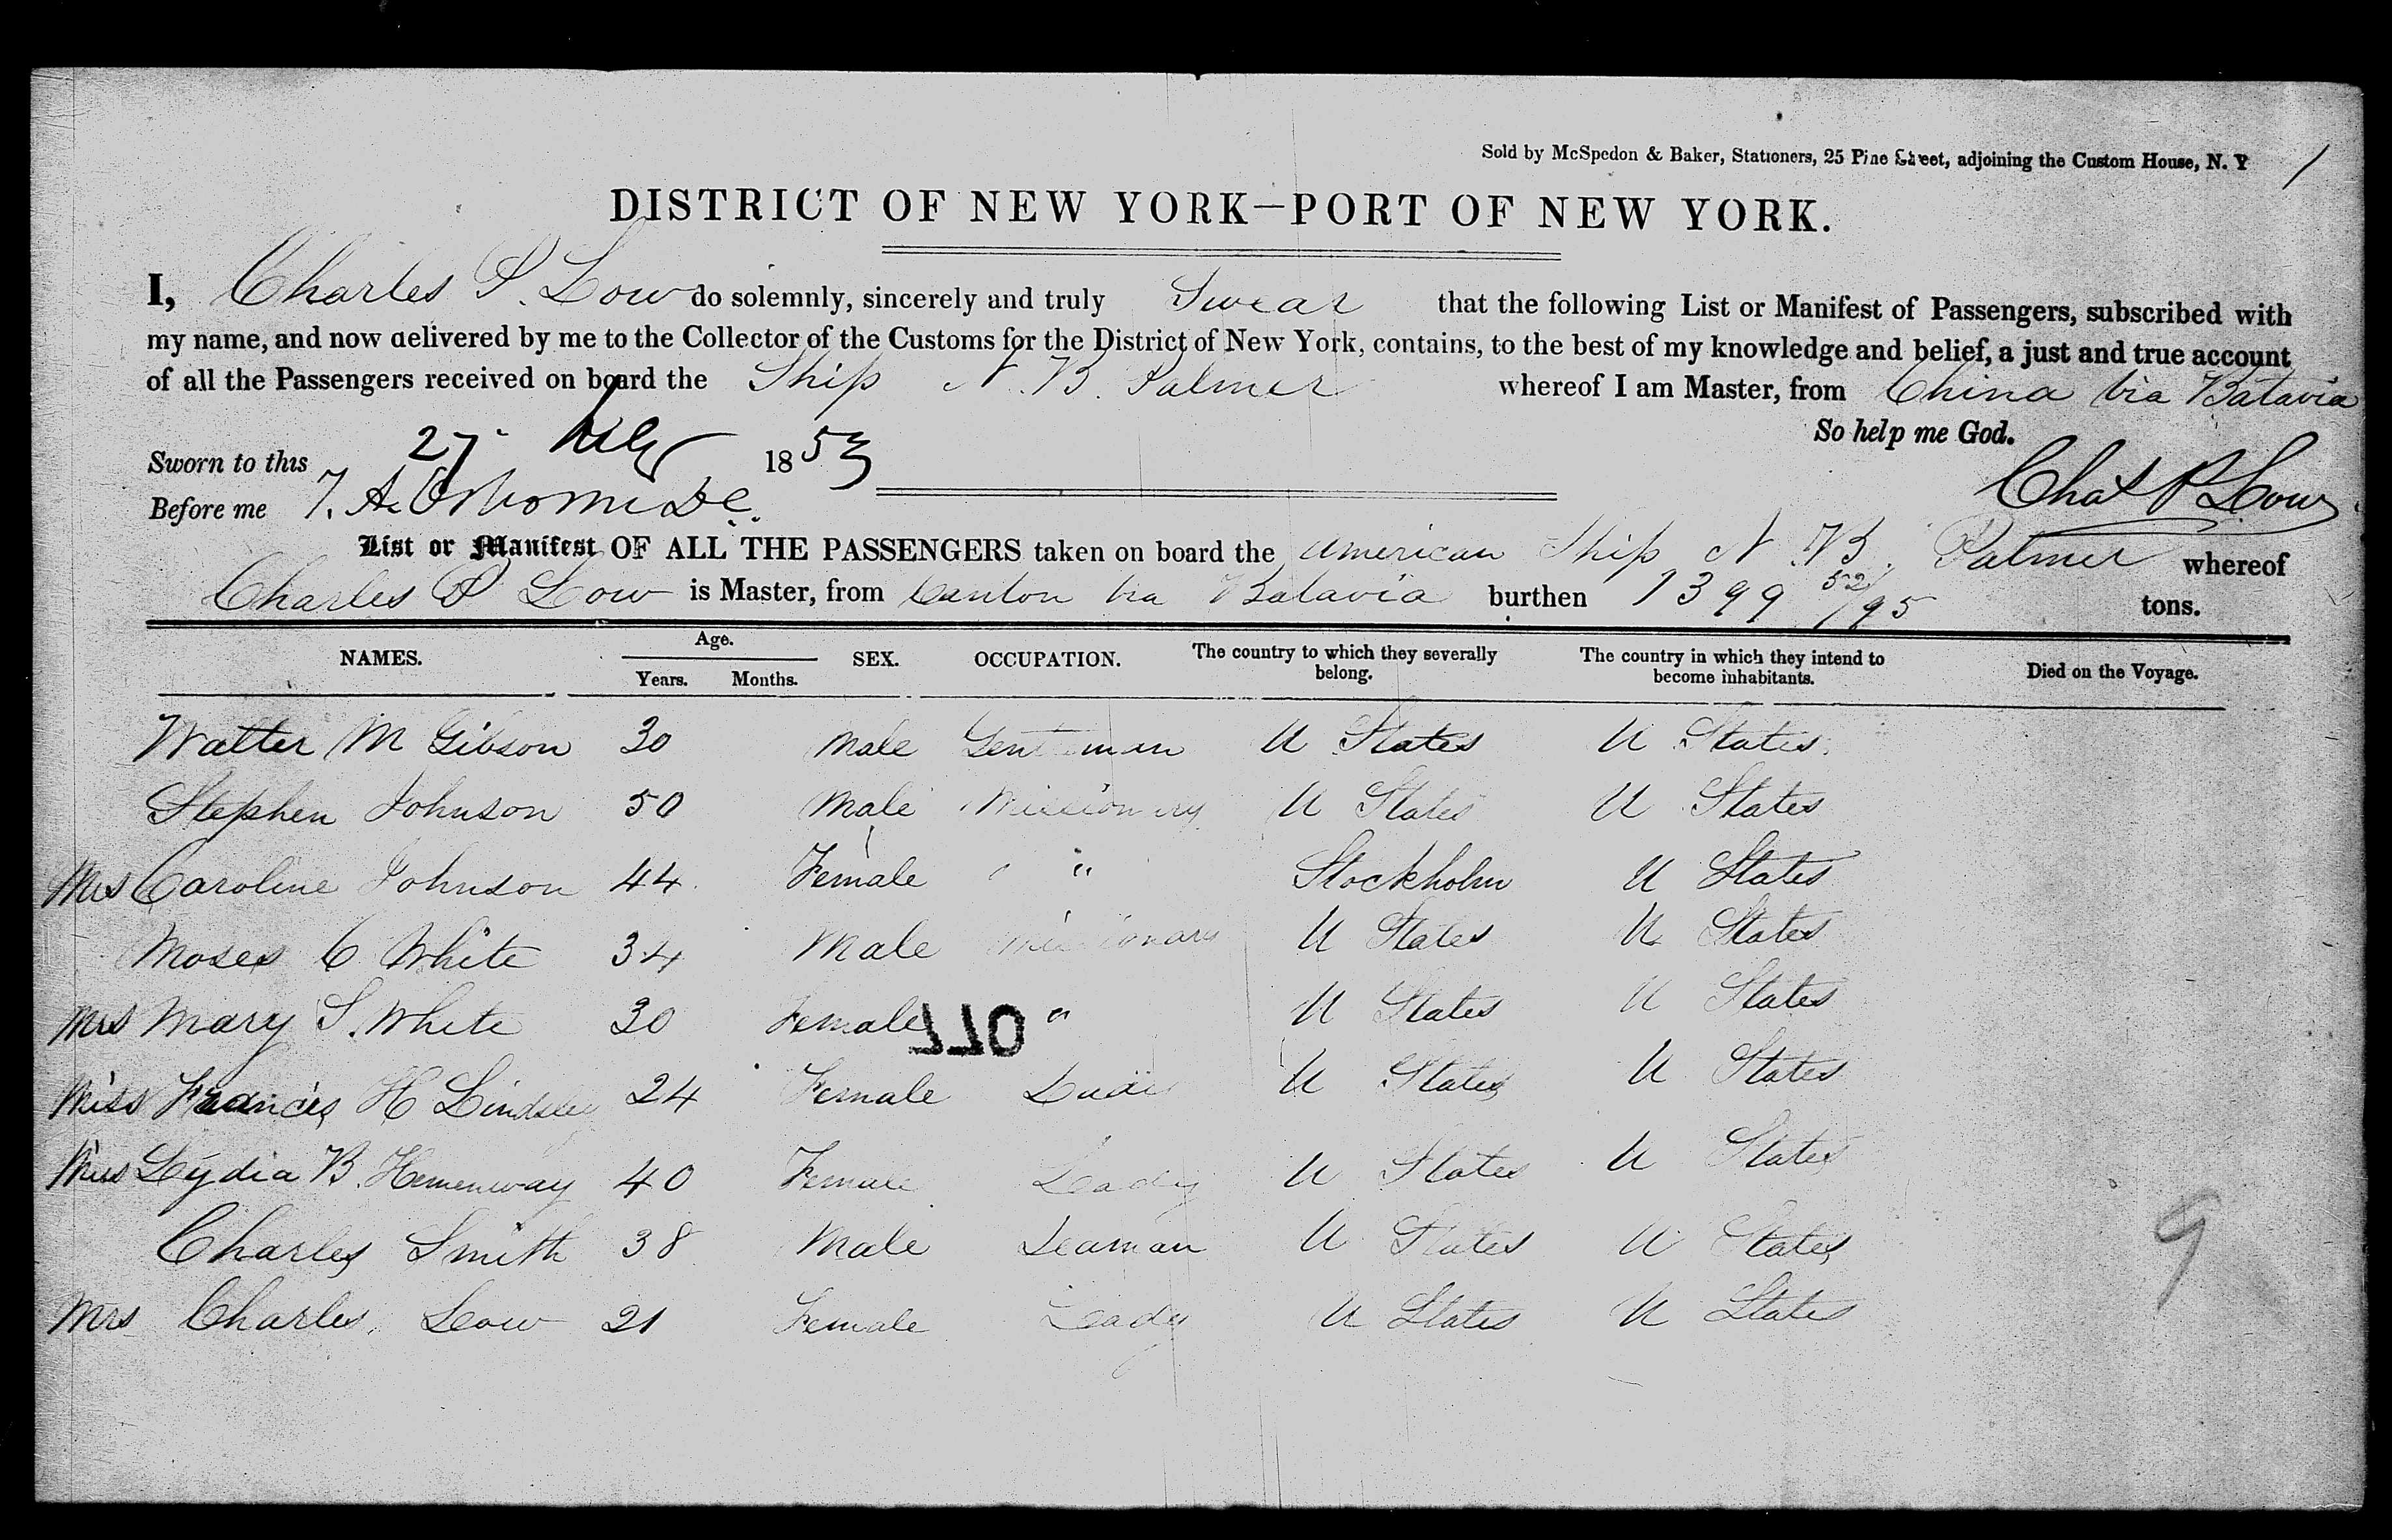 Sold by McSpedon & Baker, Stationers, 25 Pine Street, adjoining the Custom House, N. Y
DISTRICT OF NEW YORK—PORT OF NEW YORK.
I, Charles P. Low do solemnly, sincerely and truly Swear that the following List or Manifest of Passengers, subscribed with
my name, and now delivered by me to the Collector of the Customs for the District of New York, contains, to the best of my knowledge and belief, a just and true account
of all the Passengers received on board the Ship N. B. Palmer whereof I am Master, from China via Batavia
So help me God.
Sworn to this 27 1853
Before me
Chas P Low
List or Manifest OF ALL THE PASSENGERS taken on board the American Ship N. B. Palmer whereof
Charles P Low is Master, from Canton via Batavia burthen 1399 52/95 tons.
NAMES. Age. Years. Months. SEX. OCCUPATION. The country to which they severally belong. The country in which they intend to become inhabitants. Died on the Voyage.
Walter M Gibson 30 Male Gentleman U States U States.
Stephen Johnson 50 Male Missionary U States U States
Mrs Caroline Johnson 44 Female " " Stockholm U States
Moses C White 34 Male Missionary U States U States
Mrs Mary S. White 30 Female " U States U States
770
Miss Frances H Lindsley 24 Female U States U States
Miss Lydia B. Hemenway 40 Female Lady U States U States
Charles Smith 38 Male Seaman U States U States
Mrs Charles Low 21 Female Lady U States U States
9